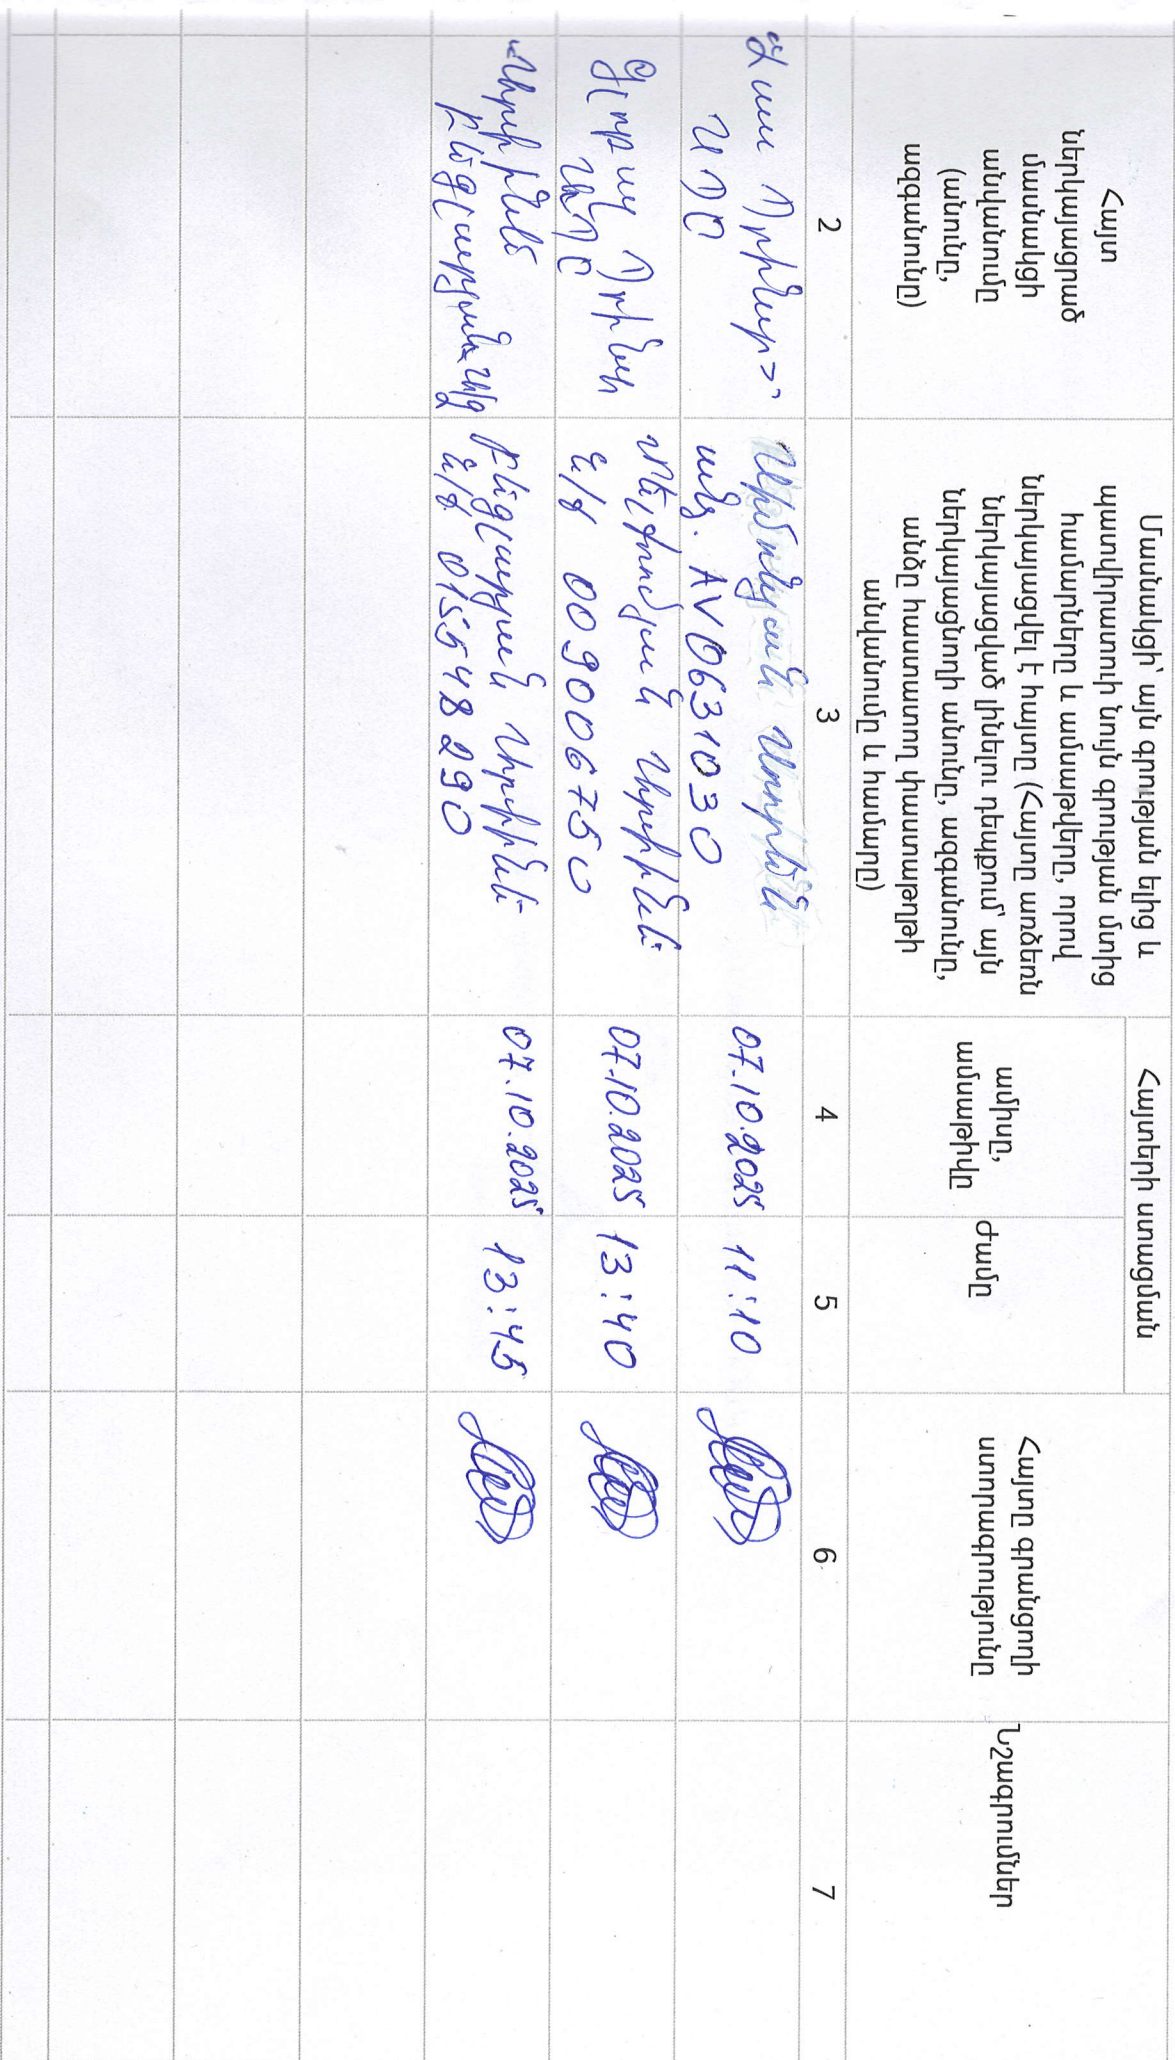 Հայտ
ներկայացրած
մասնակցի
վառանվանումը
(անունը,
ազգանունը)
Մասնակցի՝ այս գրության ելից և
պատվիրատուի նույն գրության մտից
համարները և ամսաթվերը, որով
ներկայացվել է հայտը (Հայտը առձեռն
ներկայացված լինելու դեպքում՝ այն
ներկայացնողի անունը, ազգանունը,
անձը հաստատող փաստաթղթի
անվանումը և համարը)
Հայտերի ստացման
ամիսը,
ամսաթիվը
ժամը
Հայտը գրանցողի
ստորագրությունը
Նշագրումներ
2
3
4
5
6
7
Պրինտ»
ՍՊԸ
Սիմոնյան
անձ. AV0631030
07.10.2025
11:10
Գլոբալ Պրինտ
ՍՊԸ
Մելքումյան
ն/ք 009006750
07.10.2025
13:40
Բեգլարյան
ն/ք 015548290
07.10.2025
13:45